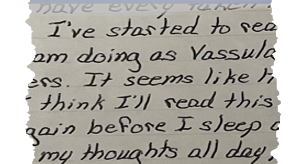 have every
I've started to rea
am doing as Vassula
ess. It seems like h
think I'll read this
gain before I sleep
my thoughts all day,